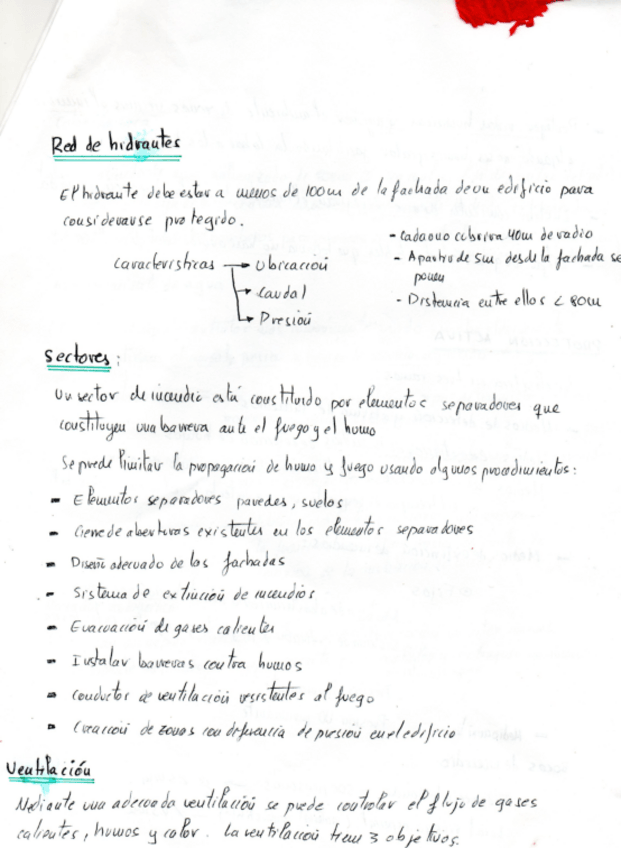 Red de hidrantes
El hidrante debe estar a menos de 100m de la fachada de un edificio para
considerarse protegido.
Características → Ubicación
→ Caudal
→ Presión
- Cada uno cubrira 40m de radio
- A partir de 5m desde la fachada se
ponen
- Distancia entre ellos < 80m
Sectores:
Un sector de incendio está constituido por elementos separadores que
constituyen una barrera ante el fuego y el humo
Se puede limitar la propagación de humo y fuego usando algunos procedimientos:
- Elementos separadores paredes, suelos
- Cierre de aberturas existentes en los elementos separadores
- Diseño adecuado de las fachadas
- Sistema de extinción de incendios
- Evacuación de gases calientes
- Instalar barreras contra humos
- Conductos de ventilación resistentes al fuego
- Creación de zonas con diferencia de presión en el edificio
Ventilación
Mediante una adecuada ventilación se puede controlar el flujo de gases
calientes, humos y calor. La ventilación tiene 3 objetivos.